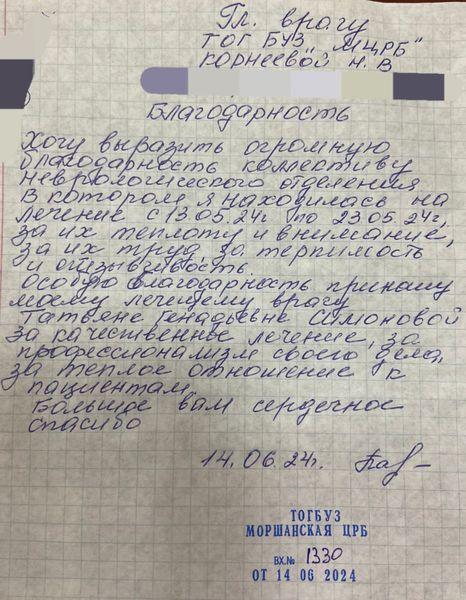 Гл. врачу
ТОГ БУЗ "МЦРБ"
Корнеевой Н. В
Благодарность
Хочу выразить огромную
благодарность коллективу
неврологического отделения
в котором я находилась на
лечение с 13.05.24г по 23.05.24г,
за их теплоту и внимание,
за их труд, за терпимость
и отзывчивость.
Особую благодарность приношу
моему лечещему врачу
Татьяне Генадьевне Симоновой
за качественное лечение, за
профессионализм своего дела,
за теплое отношение к
пациентам.
Большое вам сердечное
спасибо
14.06.24г.
ТОГБУЗ
МОРШАНСКАЯ ЦРБ
ВХ.№ 1330
ОТ 14 06 2024